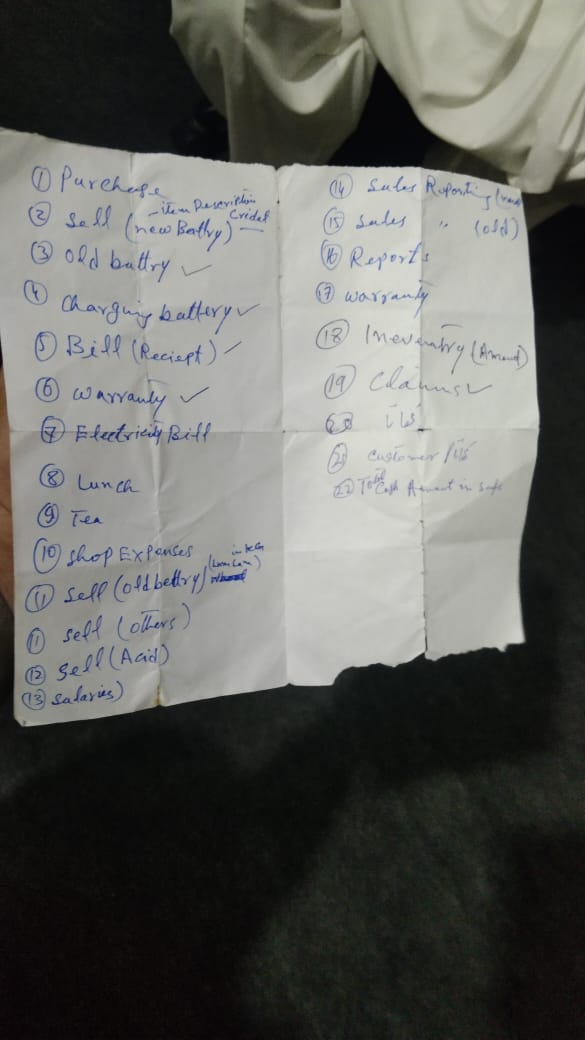 ① Purchase
② Sell (new Battry) - item Description
③ old battry ✓
④ charging battery ✓
⑤ Bill (Reciept) ✓
⑥ warranty ✓
⑦ Electricity Bill
⑧ Lunch
⑨ Tea
⑩ shop Expenses
⑪ sell (old bettry)
⑪ sell (others)
⑫ sell (Acid)
⑬ salaries)
⑭ Sales Reporting
⑮ Sales " (old)
⑯ Reports
⑰ warranty
⑱
⑲ Claims ✓
⑳
㉑ customer /
㉒ Total Cash Amount in safe